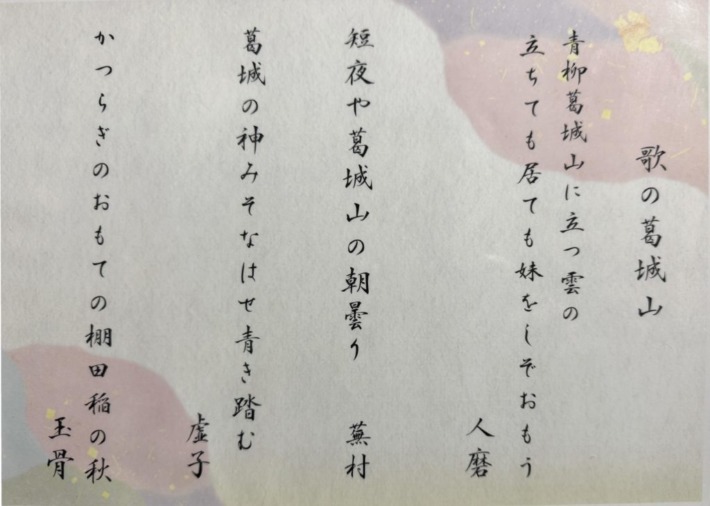 歌の葛城山
青柳葛城山に立つ雲の
立ちても居ても妹をしぞおもう
人磨
短夜や葛城山の朝曇り 蕪村
葛城の神みそなはせ青き踏む
虚子
かつらぎのおもての棚田稲の秋
玉骨